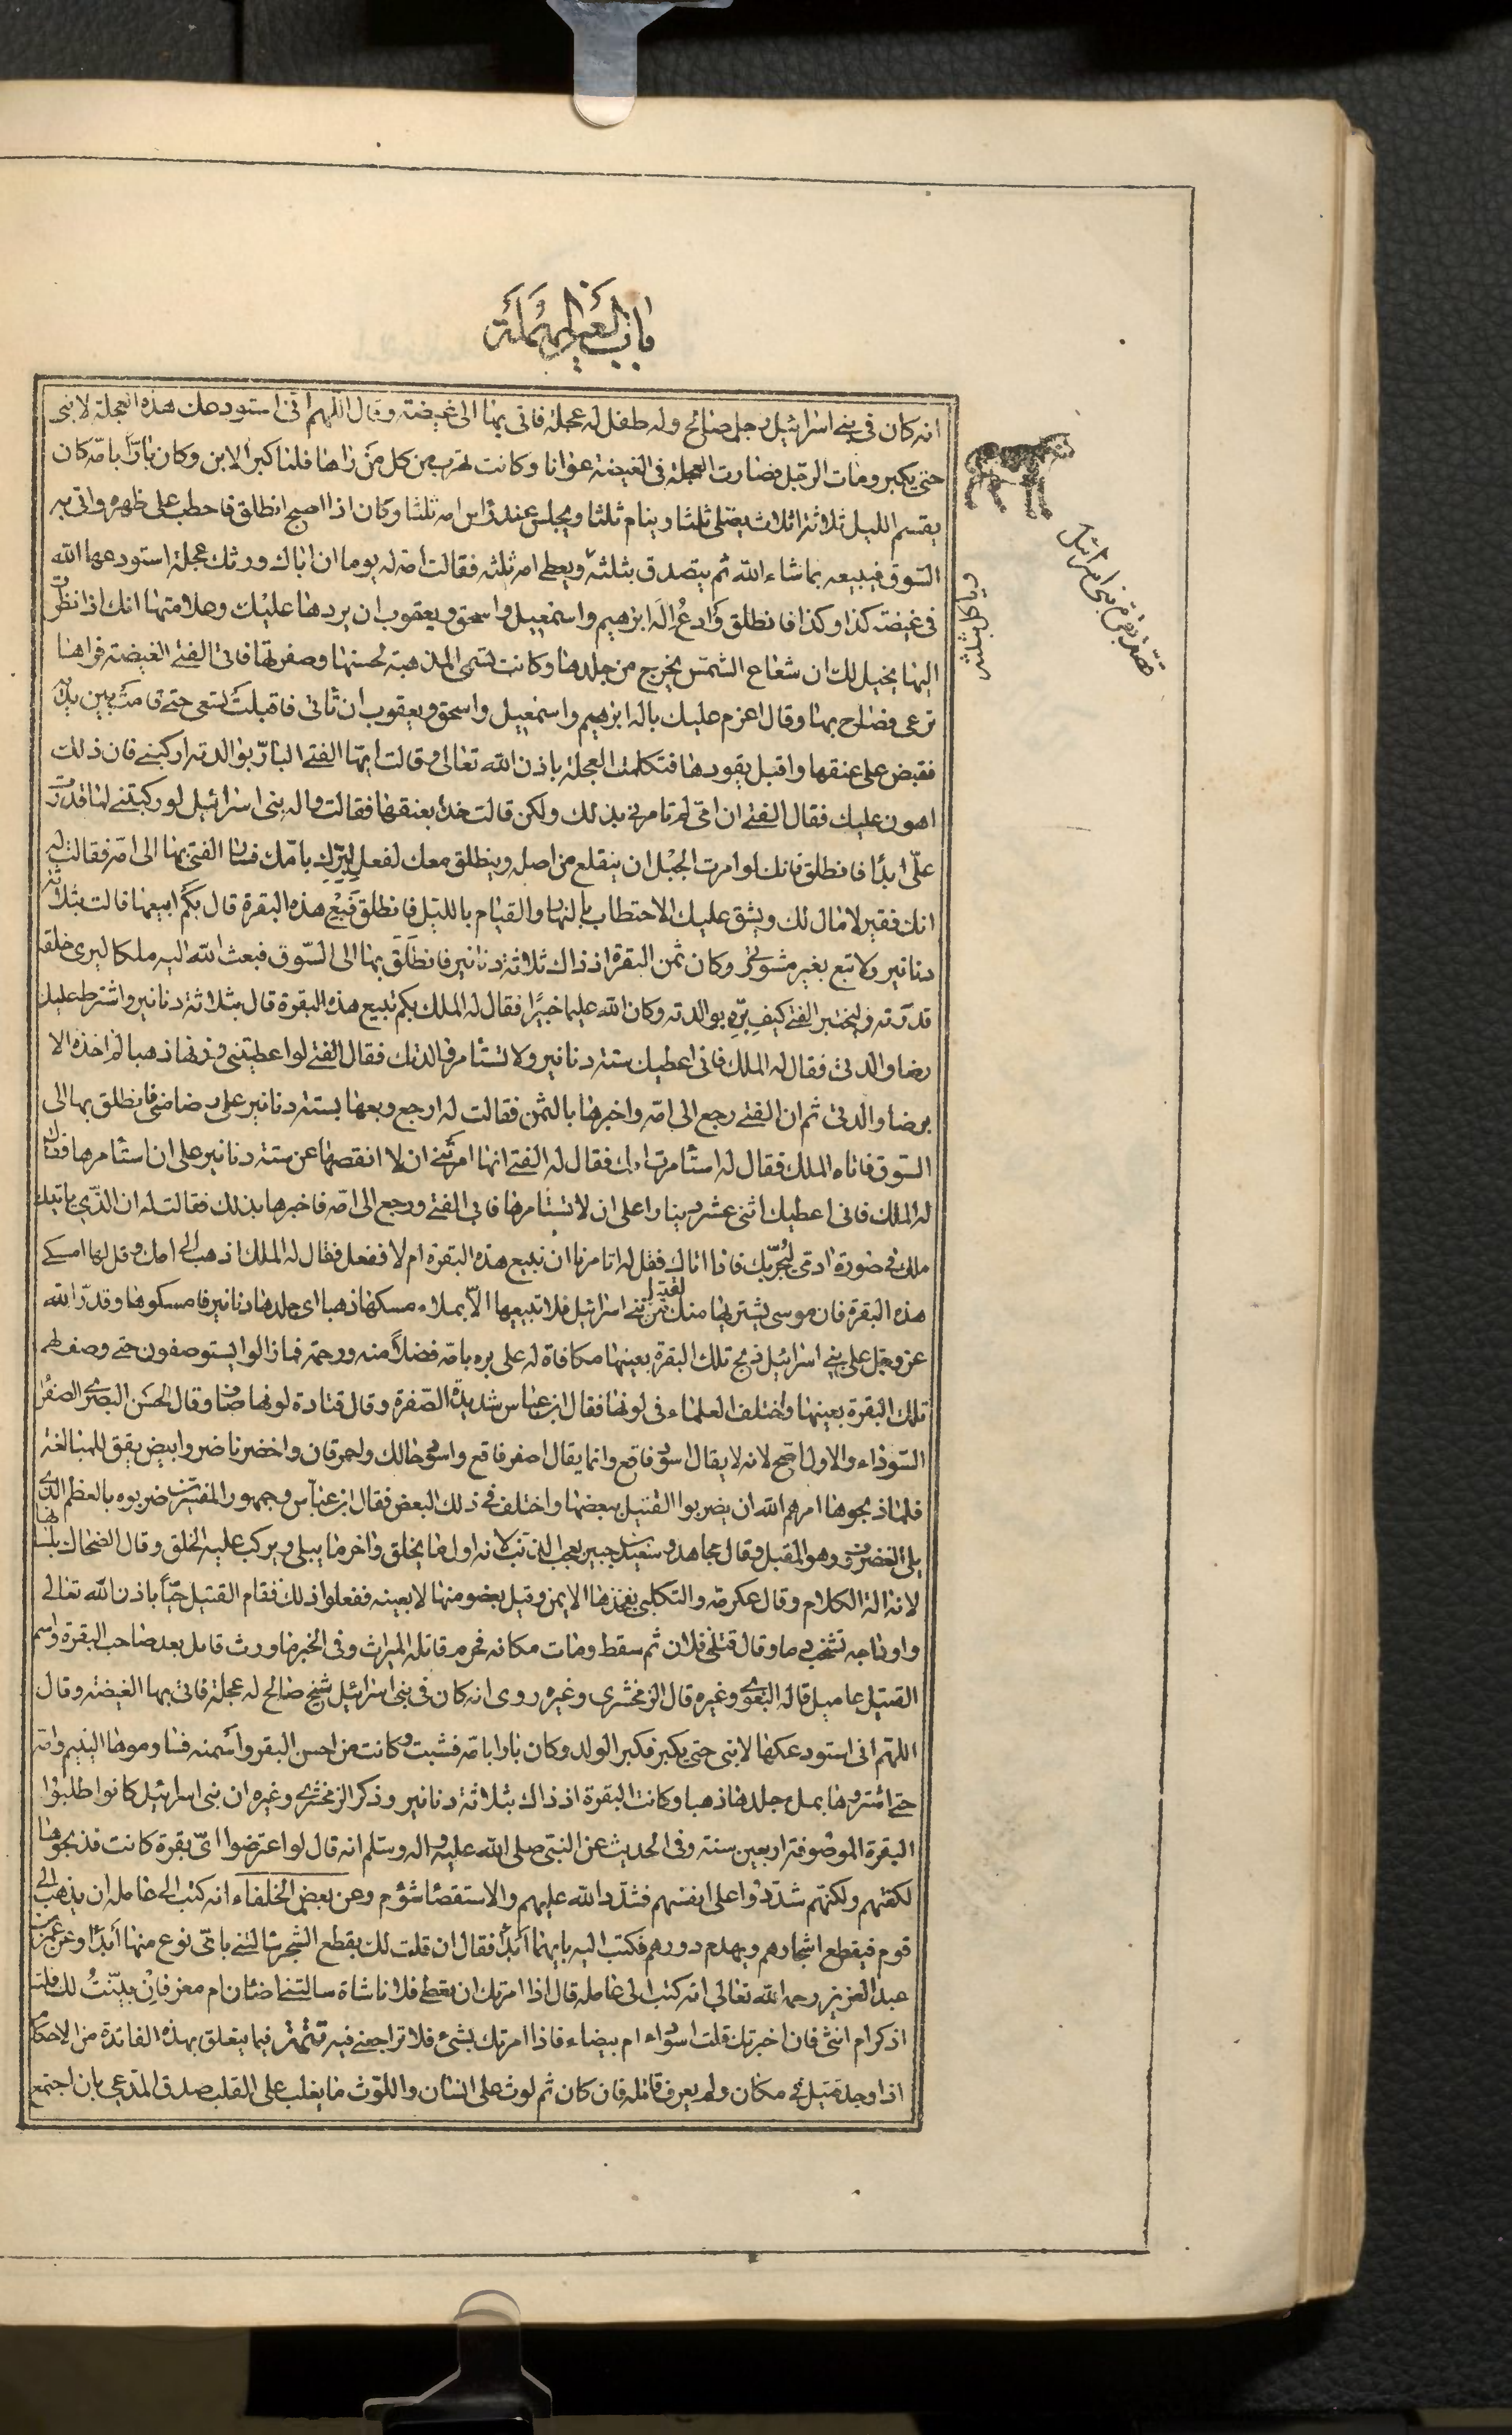 باب العين المهملة
انه كان في بنى اسرائيل رجل صالح وله طفل له عجلة فاتى بها الى غيضة وقال اللهم انى استودعك هذه العجلة لابنى
حتى يكبر ومات الرجل فصارت العجلة فى الغيضة عوانا وكانت تهرب من كل من راها فلما كبر الابن وكان بارا بامه كان
يقسم الليل ثلاثة اثلاث يصلى ثلثا وينام ثلثا ويجلس عند راس امه ثلثا وكان اذا اصبح انطلق فاحطب على ظهره واتى به
السوق فيبيعه بما شاء الله ثم يتصدق بثلثه ويعطى امه ثلثه فقالت امه له يوما ان اباك ورثك عجلة استودعها الله
فى غيضة كذا وكذا فانطلق وادع اله ابرهيم واسمعيل واسحق ويعقوب ان يردها عليك وعلامتها انك اذا نظرت
اليها يخيل لك ان شعاع الشمس يخرج من جلدها وكانت تسمى المذهبة لحسنها وصفرتها فاتى الفتى الغيضة فراها
ترعى فصاح بها وقال اعزم عليك باله ابرهيم واسمعيل واسحق ويعقوب ان تاتى فاقبلت تسعى حتى قامت بين يديه
فقبض على عنقها واقبل يقودها فتكلمت العجلة باذن الله تعالى وقالت ايها الفتى البار بوالدته اركبنى فان ذلك
اهون عليك فقال الفتى ان امى لم تامرنى بذلك ولكن قالت خذ بعنقها فقالت واله بنى اسرائيل لو ركبتنى لما قدرت
على ابدا فانطلق فانك لو امرت الجبل ان ينقلع من اصله وينطلق معك لفعل لبرك بامك فسار الفتى بها الى امه فقالت له
انك فقير لا مال لك ويشق عليك الاحتطاب بالنهار والقيام بالليل فانطلق فبع هذه البقرة قال بكم ابيعها قالت بثلاثة
دنانير ولا تبع بغير مشورتى وكان ثمن البقرة اذ ذاك ثلاثة دنانير فانطلق بها الى السوق فبعث الله اليه ملكا ليرى خلقه
قدرته وليختبر الفتى كيف بره بوالدته وكان الله عليما خبيرا فقال له الملك بكم تبيع هذه البقرة قال بثلاثة دنانير واشترط عليك
رضا والدتى فقال له الملك فانى اعطيك ستة دنانير ولا تستامر والدتك فقال الفتى لو اعطيتنى وزنها ذهبا لم اخذه الا
برضا والدتى ثم ان الفتى رجع الى امه واخبرها بالثمن فقالت له ارجع وبعها بستة دنانير على رضا منى فانطلق بها الى
السوق فاتاه الملك فقال له استامرت امك فقال له الفتى انها امرتنى ان لا انقصها عن ستة دنانير على ان استامرها فقال
له الملك فانى اعطيك اثنى عشر دينارا على ان لا تستامرها فابى الفتى ورجع الى امه فاخبرها بذلك فقالت له ان الذى ياتيك
ملك فى صورة ادمى ليجربك فاذا اتاك فقل له اتامرنا ان نبيع هذه البقرة ام لا ففعل فقال له الملك اذهب الى امك وقل لها امسكى
هذه البقرة فان موسى يشتريها منك لقتيل من بنى اسرائيل فلا تبيعها الا بملاء مسكها ذهبا اى جلدها دنانير فامسكوها وقدر الله
عز وجل على بنى اسرائيل ذبح تلك البقرة بعينها مكافاة له على بره بامه فضلا منه ورحمة فما زالوا يستوصفون حتى وصف لهم
تلك البقرة بعينها واختلف العلماء فى لونها فقال ابن عباس شديدة الصفرة وقال قتادة لونها صاف وقال الحسن البصرى الصفرا
السوداء والاول اصح لانه لا يقال اسود فاقع وانما يقال اصفر فاقع واسود حالك واحمر قان واخضر ناضر وابيض يقق للمبالغة
فلما ذبحوها امرهم الله ان يضربوا القتيل ببعضها واختلف فى ذلك البعض فقال ابن عباس وجمهور المفسرين ضربوه بالعظم الذى
يلى الغضروف وهو المقبل وقال مجاهد وسعيد بن جبير بعجب الذنب لانه اول ما يخلق واخر ما يبلى ويركب عليه الخلق وقال الضحاك بلسانها
لانه الة الكلام وقال عكرمة والكلبى بفخذها الايمن وقيل بعضو منها لا بعينه ففعلوا ذلك فقام القتيل حيا باذن الله تعالى
واوداجه تشخب دما وقال قتلنى فلان ثم سقط ومات مكانه فحرم قاتله الميراث وفى الخبر ما ورث قاتل بعد صاحب البقرة واسم
القتيل عاميل قاله البغوى وغيره قال الزمخشرى وغيره روى انه كان فى بنى اسرائيل شيخ صالح له عجلة فاتى بها الغيضة وقال
اللهم انى استودعكها لابنى حتى يكبر فكبر الولد وكان بارا بامه فشبت وكانت من احسن البقر واسمنه فساوموها اليتيم وامه
حتى اشتروها بملء جلدها ذهبا وكانت البقرة اذ ذاك بثلاثة دنانير وذكر الزمخشرى وغيره ان بنى اسرائيل كانوا طلبوا
البقرة الموصوفة اربعين سنة وفى الحديث عن النبى صلى الله عليه واله وسلم انه قال لو اعترضوا اى بقرة كانت فذبحوها
لكفتهم ولكنهم شددوا على انفسهم فشدد الله عليهم والاستقصا شؤم وعن بعض الخلفاء انه كتب الى عامله ان يذهب الى
قوم فيقطع اشجارهم ويهدم دورهم فكتب اليه بايهما ابدا فقال ان قلت لك بقطع الشجر سالتنى باى نوع منها ابدا وعن عمر بن
عبد العزيز رحمه الله تعالى انه كتب الى عامله قال اذا امرتك ان تعطى فلانا شاة سالتنى اضان ام معز فان بينت لك قلت
اذكر ام انثى فان اخبرتك قلت اسوداء ام بيضاء فاذا امرتك بشئ فلا تراجعنى فيه تتمة فيما يتعلق بهذه الفائدة من الاحكام
اذا وجد قتيل فى مكان ولم يعرف قاتله فان كان ثم لوث على انسان واللوث ما يغلب على القلب صدق المدعى بان اجتمع
وياكل بثلثه
قصة بقرة بنى اسرائيل